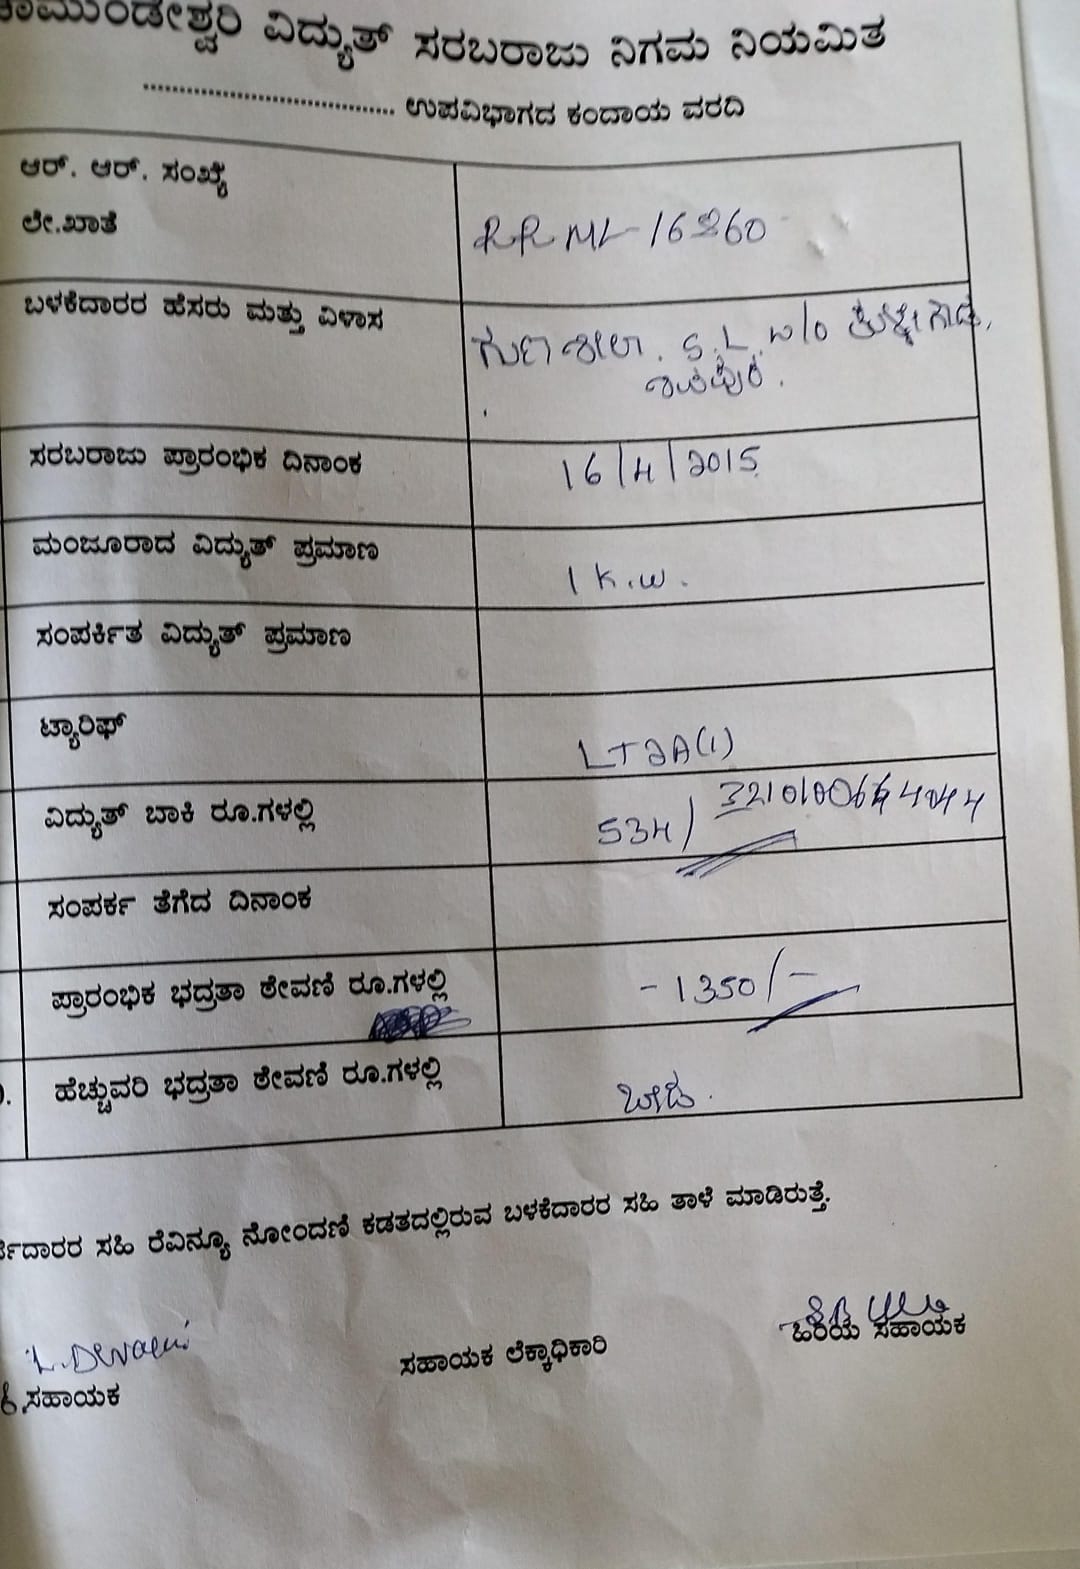 ಚಾಮುಂಡೇಶ್ವರಿ ವಿದ್ಯುತ್ ಸರಬರಾಜು ನಿಗಮ ನಿಯಮಿತ
.................................. ಉಪವಿಭಾಗದ ಕಂದಾಯ ವರದಿ
ಆರ್. ಆರ್. ಸಂಖ್ಯೆ
ಲೇ.ಖಾತೆ
RR ML-16260
ಬಳಕೆದಾರರ ಹೆಸರು ಮತ್ತು ವಿಳಾಸ
ಗುಣಶೀಲಾ. S.L. w/o
ಶಿವಪುರ.
ಸರಬರಾಜು ಪ್ರಾರಂಭಿಕ ದಿನಾಂಕ
16/4/2015
ಮಂಜೂರಾದ ವಿದ್ಯುತ್ ಪ್ರಮಾಣ
1 K.W.
ಸಂಪರ್ಕಿತ ವಿದ್ಯುತ್ ಪ್ರಮಾಣ
ಟ್ಯಾರಿಫ್
LT2A(1)
ವಿದ್ಯುತ್ ಬಾಕಿ ರೂ.ಗಳಲ್ಲಿ
534/
ಸಂಪರ್ಕ ತೆಗೆದ ದಿನಾಂಕ
ಪ್ರಾರಂಭಿಕ ಭದ್ರತಾ ಠೇವಣಿ ರೂ.ಗಳಲ್ಲಿ
- 1350/-
ಹೆಚ್ಚುವರಿ ಭದ್ರತಾ ಠೇವಣಿ ರೂ.ಗಳಲ್ಲಿ
ದಾರರ ಸಹಿ ರೆವಿನ್ಯೂ ನೋಂದಣಿ ಕಡತದಲ್ಲಿರುವ ಬಳಕೆದಾರರ ಸಹಿ ತಾಳೆ ಮಾಡಿರುತ್ತೆ.
ಸಹಾಯಕ
ಸಹಾಯಕ ಲೆಕ್ಕಾಧಿಕಾರಿ
ಹಿರಿಯ ಸಹಾಯಕ